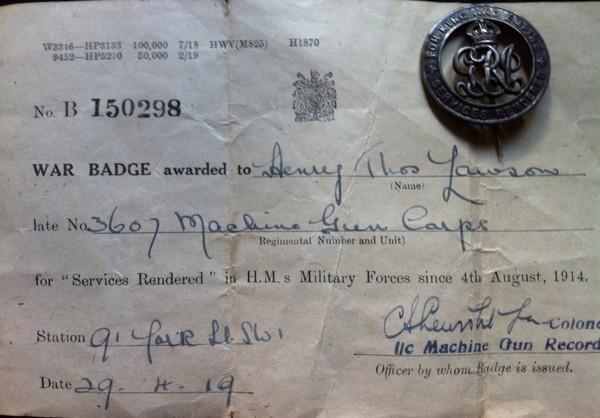 W3346—HP3133 100,000 7/18 HWV(M825) H1870
9452—HP5210 50,000 2/19
FOR KING AND EMPIRE
SERVICES RENDERED
No. B 150298
WAR BADGE awarded to Henry Thos Lawson
(Name)
late No. 3607 Machine Gun Corps
Regimental Number and Unit)
for "Services Rendered" in H.M.s Military Forces since 4th August, 1914.
Station 91 York St. SW1
for Colone
I/c Machine Gun Record
Officer by whom Badge is issued.
Date 29. 4. 19